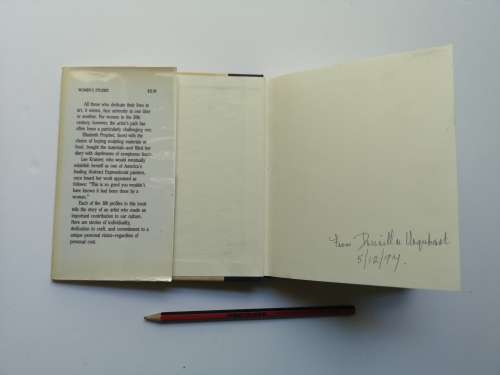 WOMEN'S STUDIES
All those who dedicate their lives to
art, it seems, face adversity at one time
or another. For women in the 20th
century, however, the artist's path has
often been a particularly challenging one.
Elizabeth Prophet, faced with the
choice of buying sculpting materials or
food, bought the materials—and filled her
diary with depictions of symptoms
Lee Krasner, who would eventually
establish herself as one of America's
leading Abstract Expressionist painters,
once heard her work appraised as
follows: "This is so good you wouldn't
have known it had been done by a
woman."
Each of the profiles in this book
tells the story of an artist who made an
important contribution to our culture.
Here are stories of individuality,
dedication to craft, and commitment to a
unique personal vision—regardless of
personal cost.
from Urquhart
5/12/94.